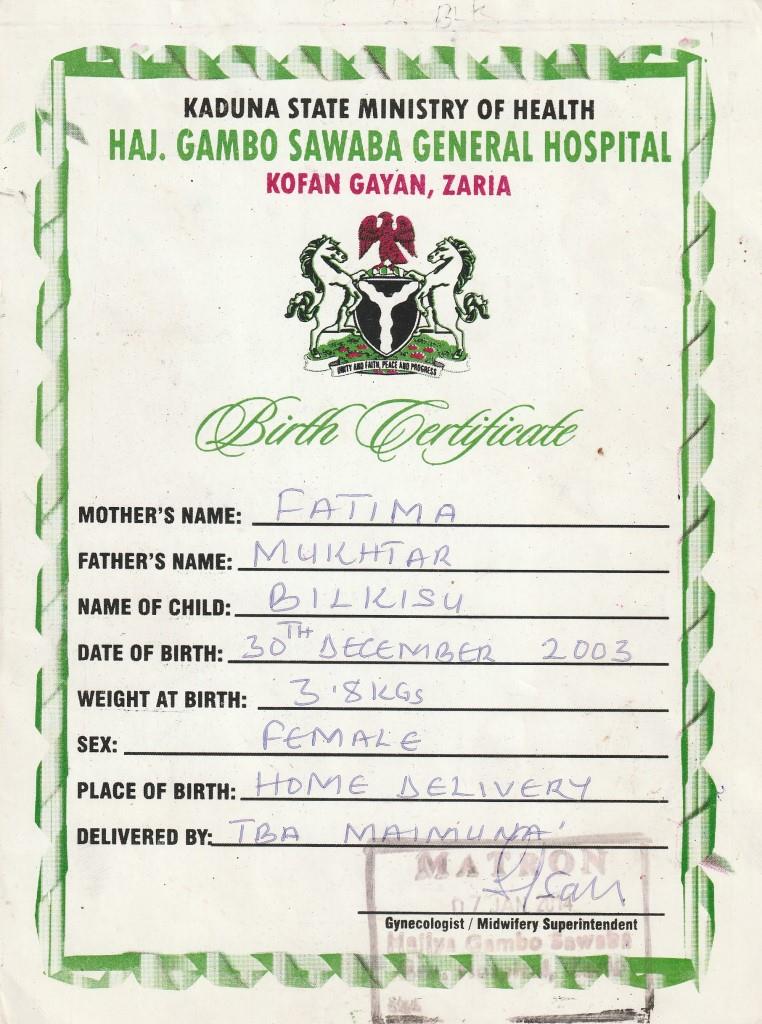 BLK
KADUNA STATE MINISTRY OF HEALTH
HAJ. GAMBO SAWABA GENERAL HOSPITAL
KOFAN GAYAN, ZARIA
UNITY AND FAITH, PEACE AND PROGRESS
Birth Certificate
MOTHER'S NAME: FATIMA
FATHER'S NAME: MUKHTAR
NAME OF CHILD: BILKISU
DATE OF BIRTH: 30TH DECEMBER 2003
WEIGHT AT BIRTH: 3.8KGs
SEX: FEMALE
PLACE OF BIRTH: HOME DELIVERY
DELIVERED BY: TBA MAIMUNA
MATRON
07 JAN 2014
Gynecologist / Midwifery Superintendent
Hajiya Gambo Sawaba